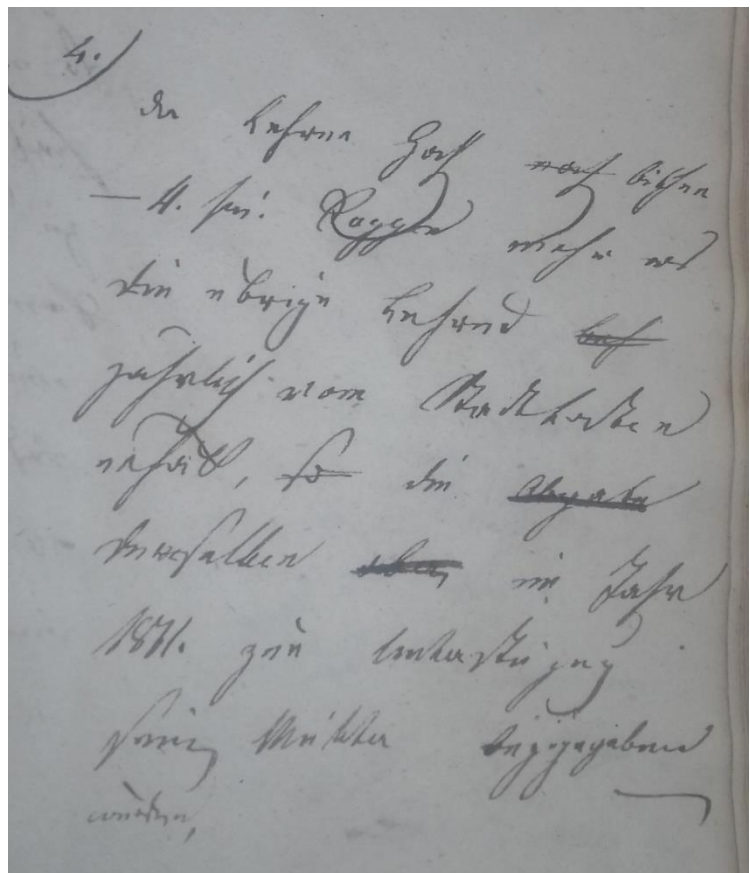 4.)
Da Lehrer Hoch noch bisher
– 4. sri. Roggen mehr als
die übrige Lehrer
jährlich vom Stadtkasten
erhält, so die Abgabe
demselben im Jahr
1811. zur Unterstüzung
seiner Mutter beygegeben
wurden,